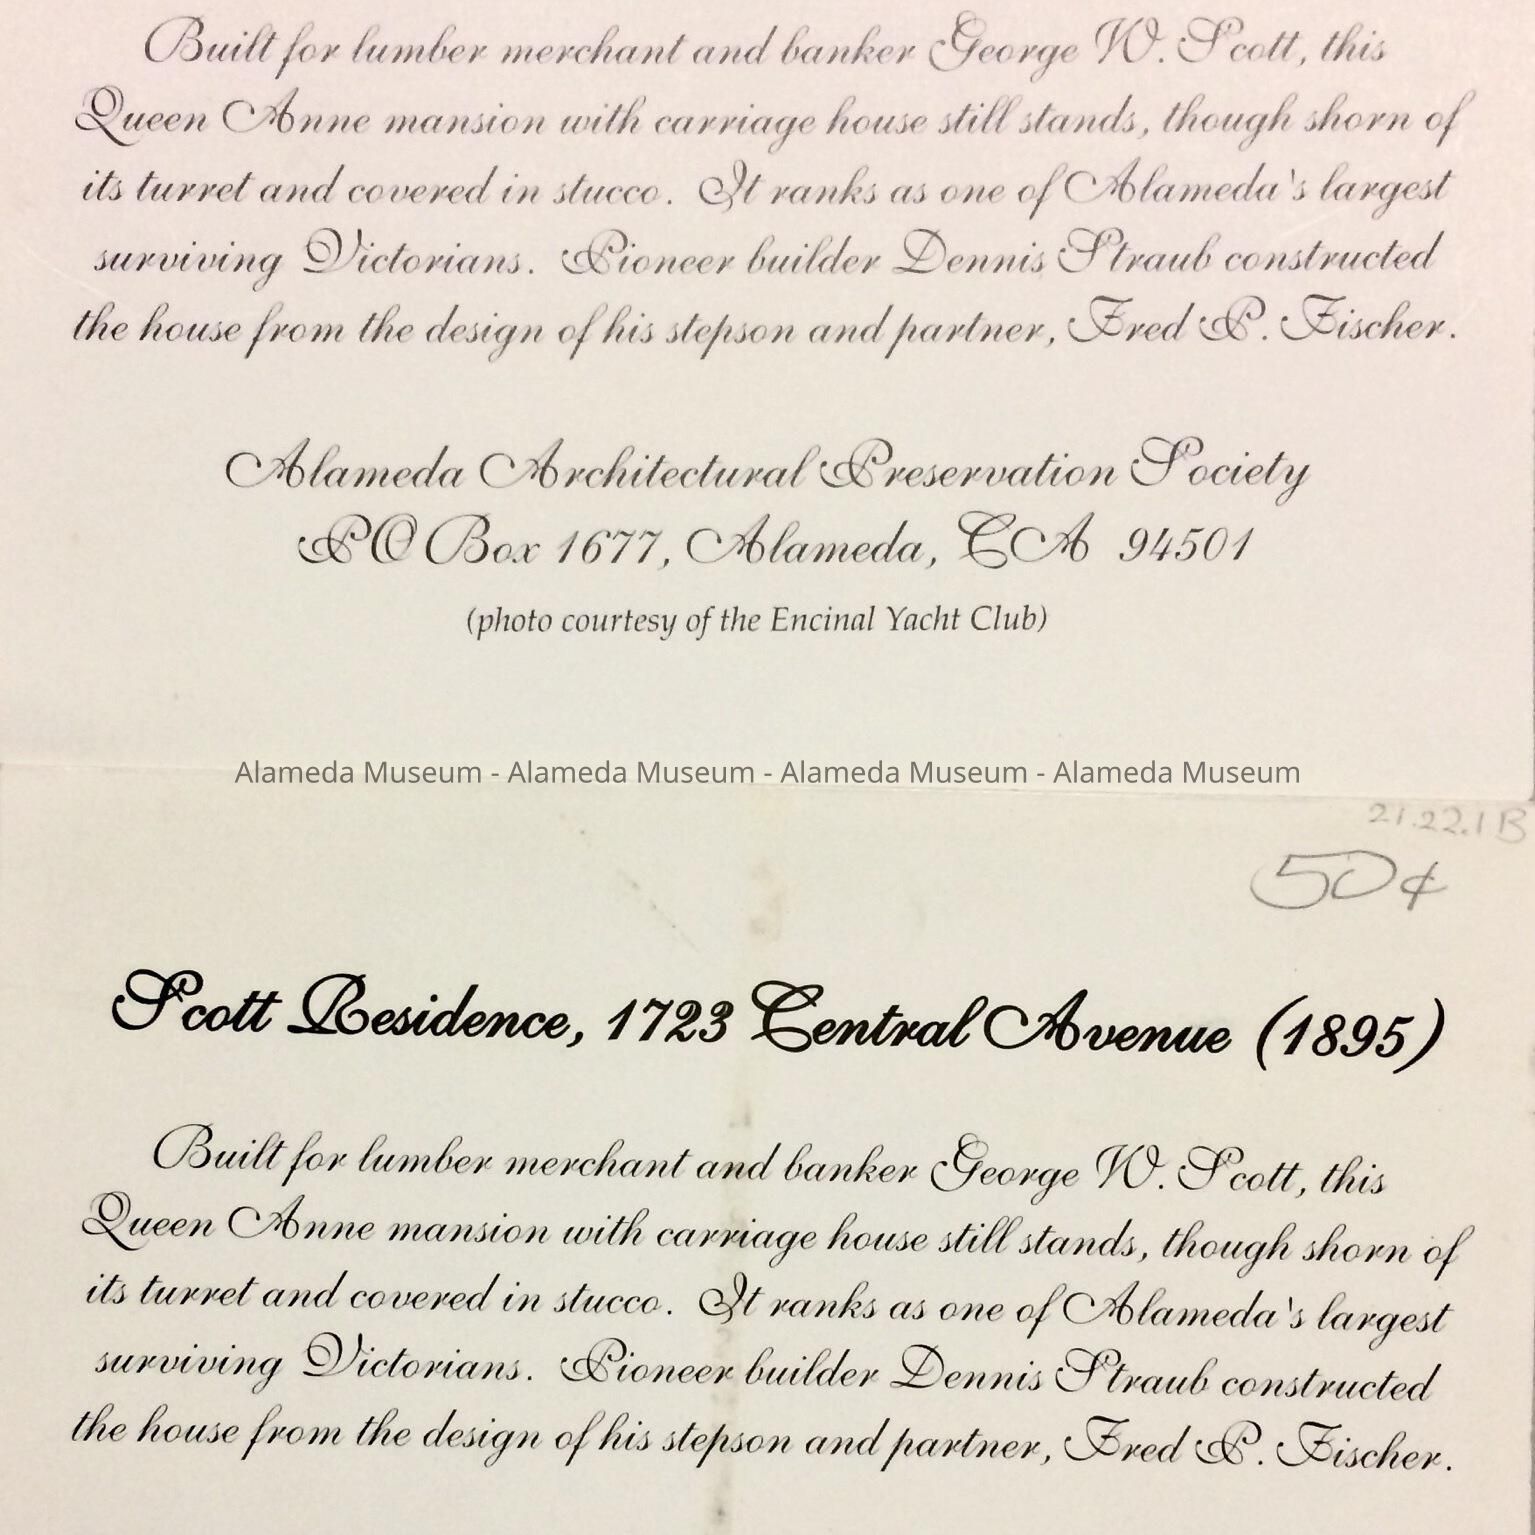 Built for lumber merchant and banker George W. Scott, this
Queen Anne mansion with carriage house still stands, though shorn of
its turret and covered in stucco. It ranks as one of Alameda's largest
surviving Victorians. Pioneer builder Dennis Straub constructed
the house from the design of his stepson and partner, Fred P. Fischer.
Alameda Architectural Preservation Society
PO Box 1677, Alameda, CA 94501
(photo courtesy of the Encinal Yacht Club)
Alameda Museum - Alameda Museum - Alameda Museum - Alameda Museum
21.22.1B
50¢
Scott Residence, 1723 Central Avenue (1895)
Built for lumber merchant and banker George W. Scott, this
Queen Anne mansion with carriage house still stands, though shorn of
its turret and covered in stucco. It ranks as one of Alameda's largest
surviving Victorians. Pioneer builder Dennis Straub constructed
the house from the design of his stepson and partner, Fred P. Fischer.